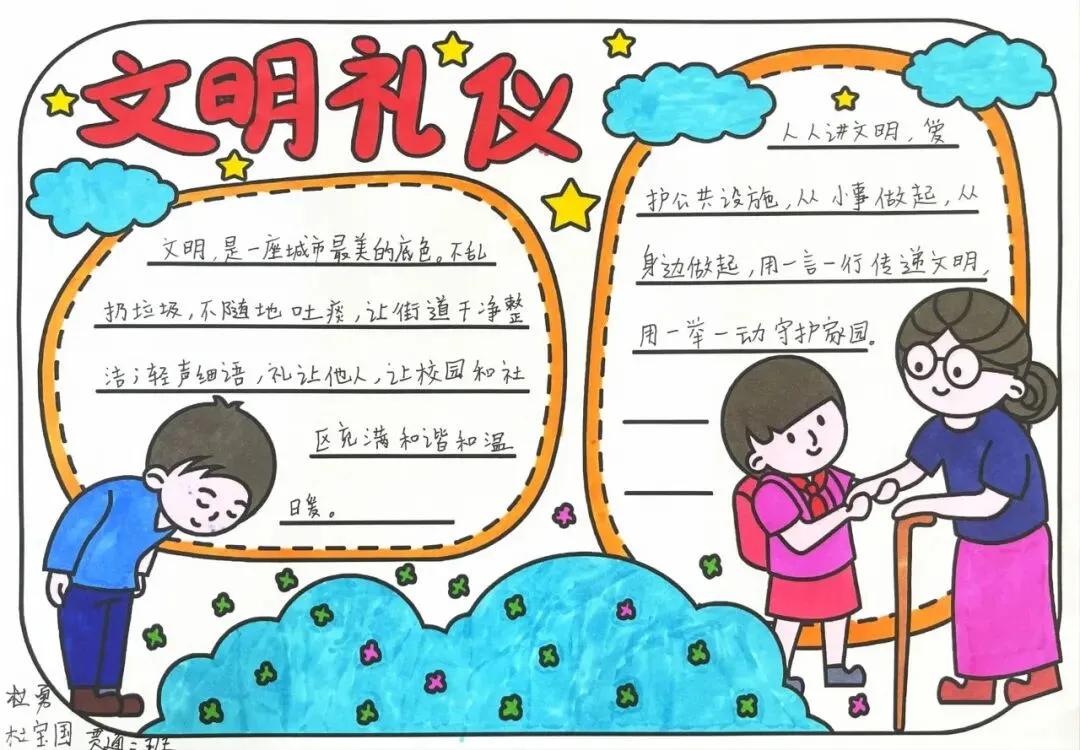 文明礼仪
文明,是一座城市最美的底色。不乱
扔垃圾,不随地吐痰,让街道干净整
洁;轻声细语,礼让他人,让校园和社
区充满和谐和温
暖。
人人讲文明,爱
护公共设施,从小事做起,从
身边做起,用一言一行传递文明,
用一举一动守护家园。
杜勇
杜宝国 贯通二班